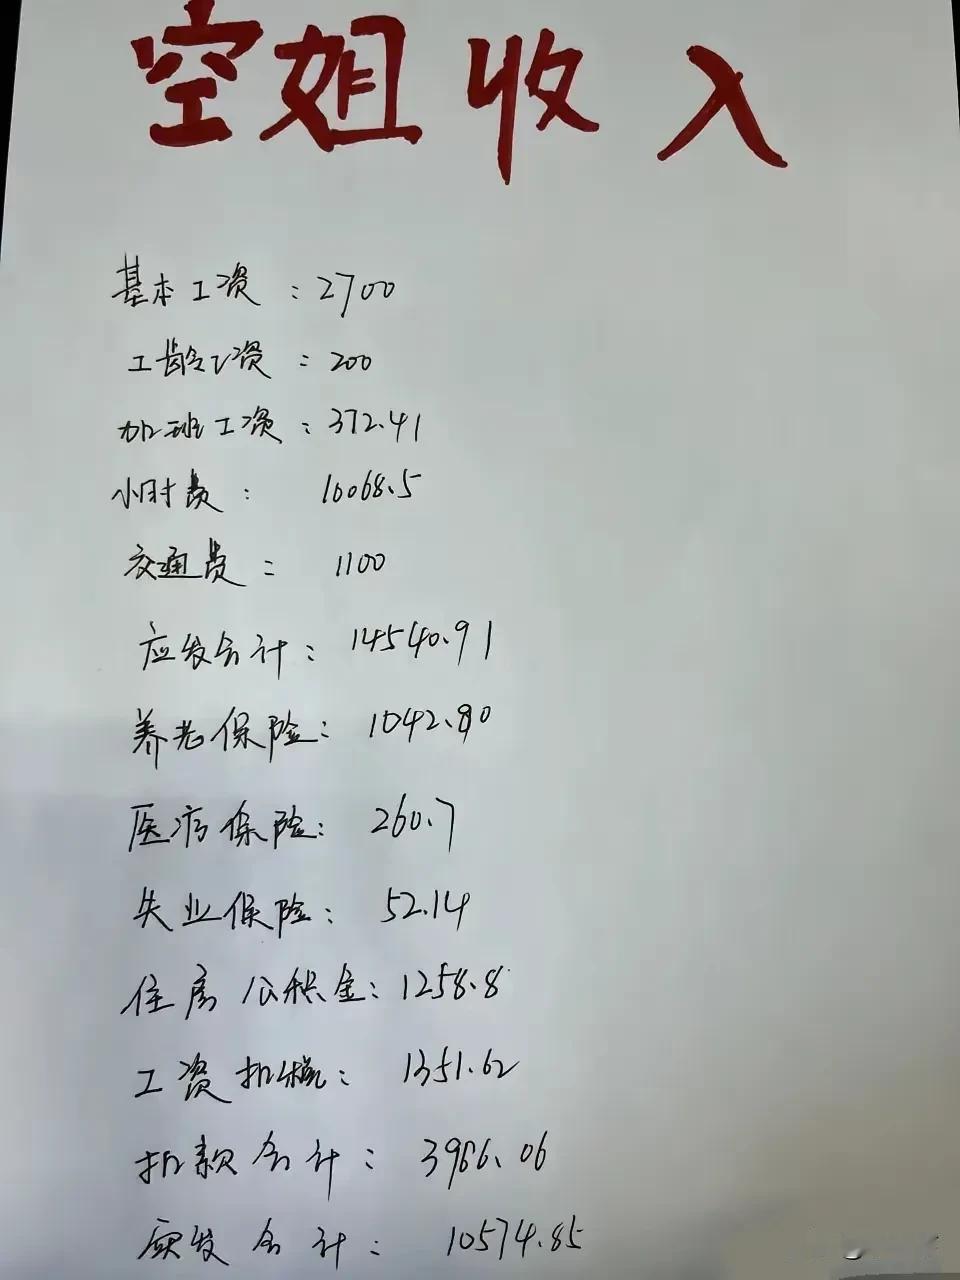 空姐收入
基本工资：2700
工龄工资：200
加班工资：372.41
小时费：10068.5
交通费：1100
应发合计：14540.91
养老保险：1042.80
医疗保险：260.7
失业保险：52.14
住房公积金：1258.8
工资扣税：1351.62
扣款合计：3966.06
实发合计：10574.85